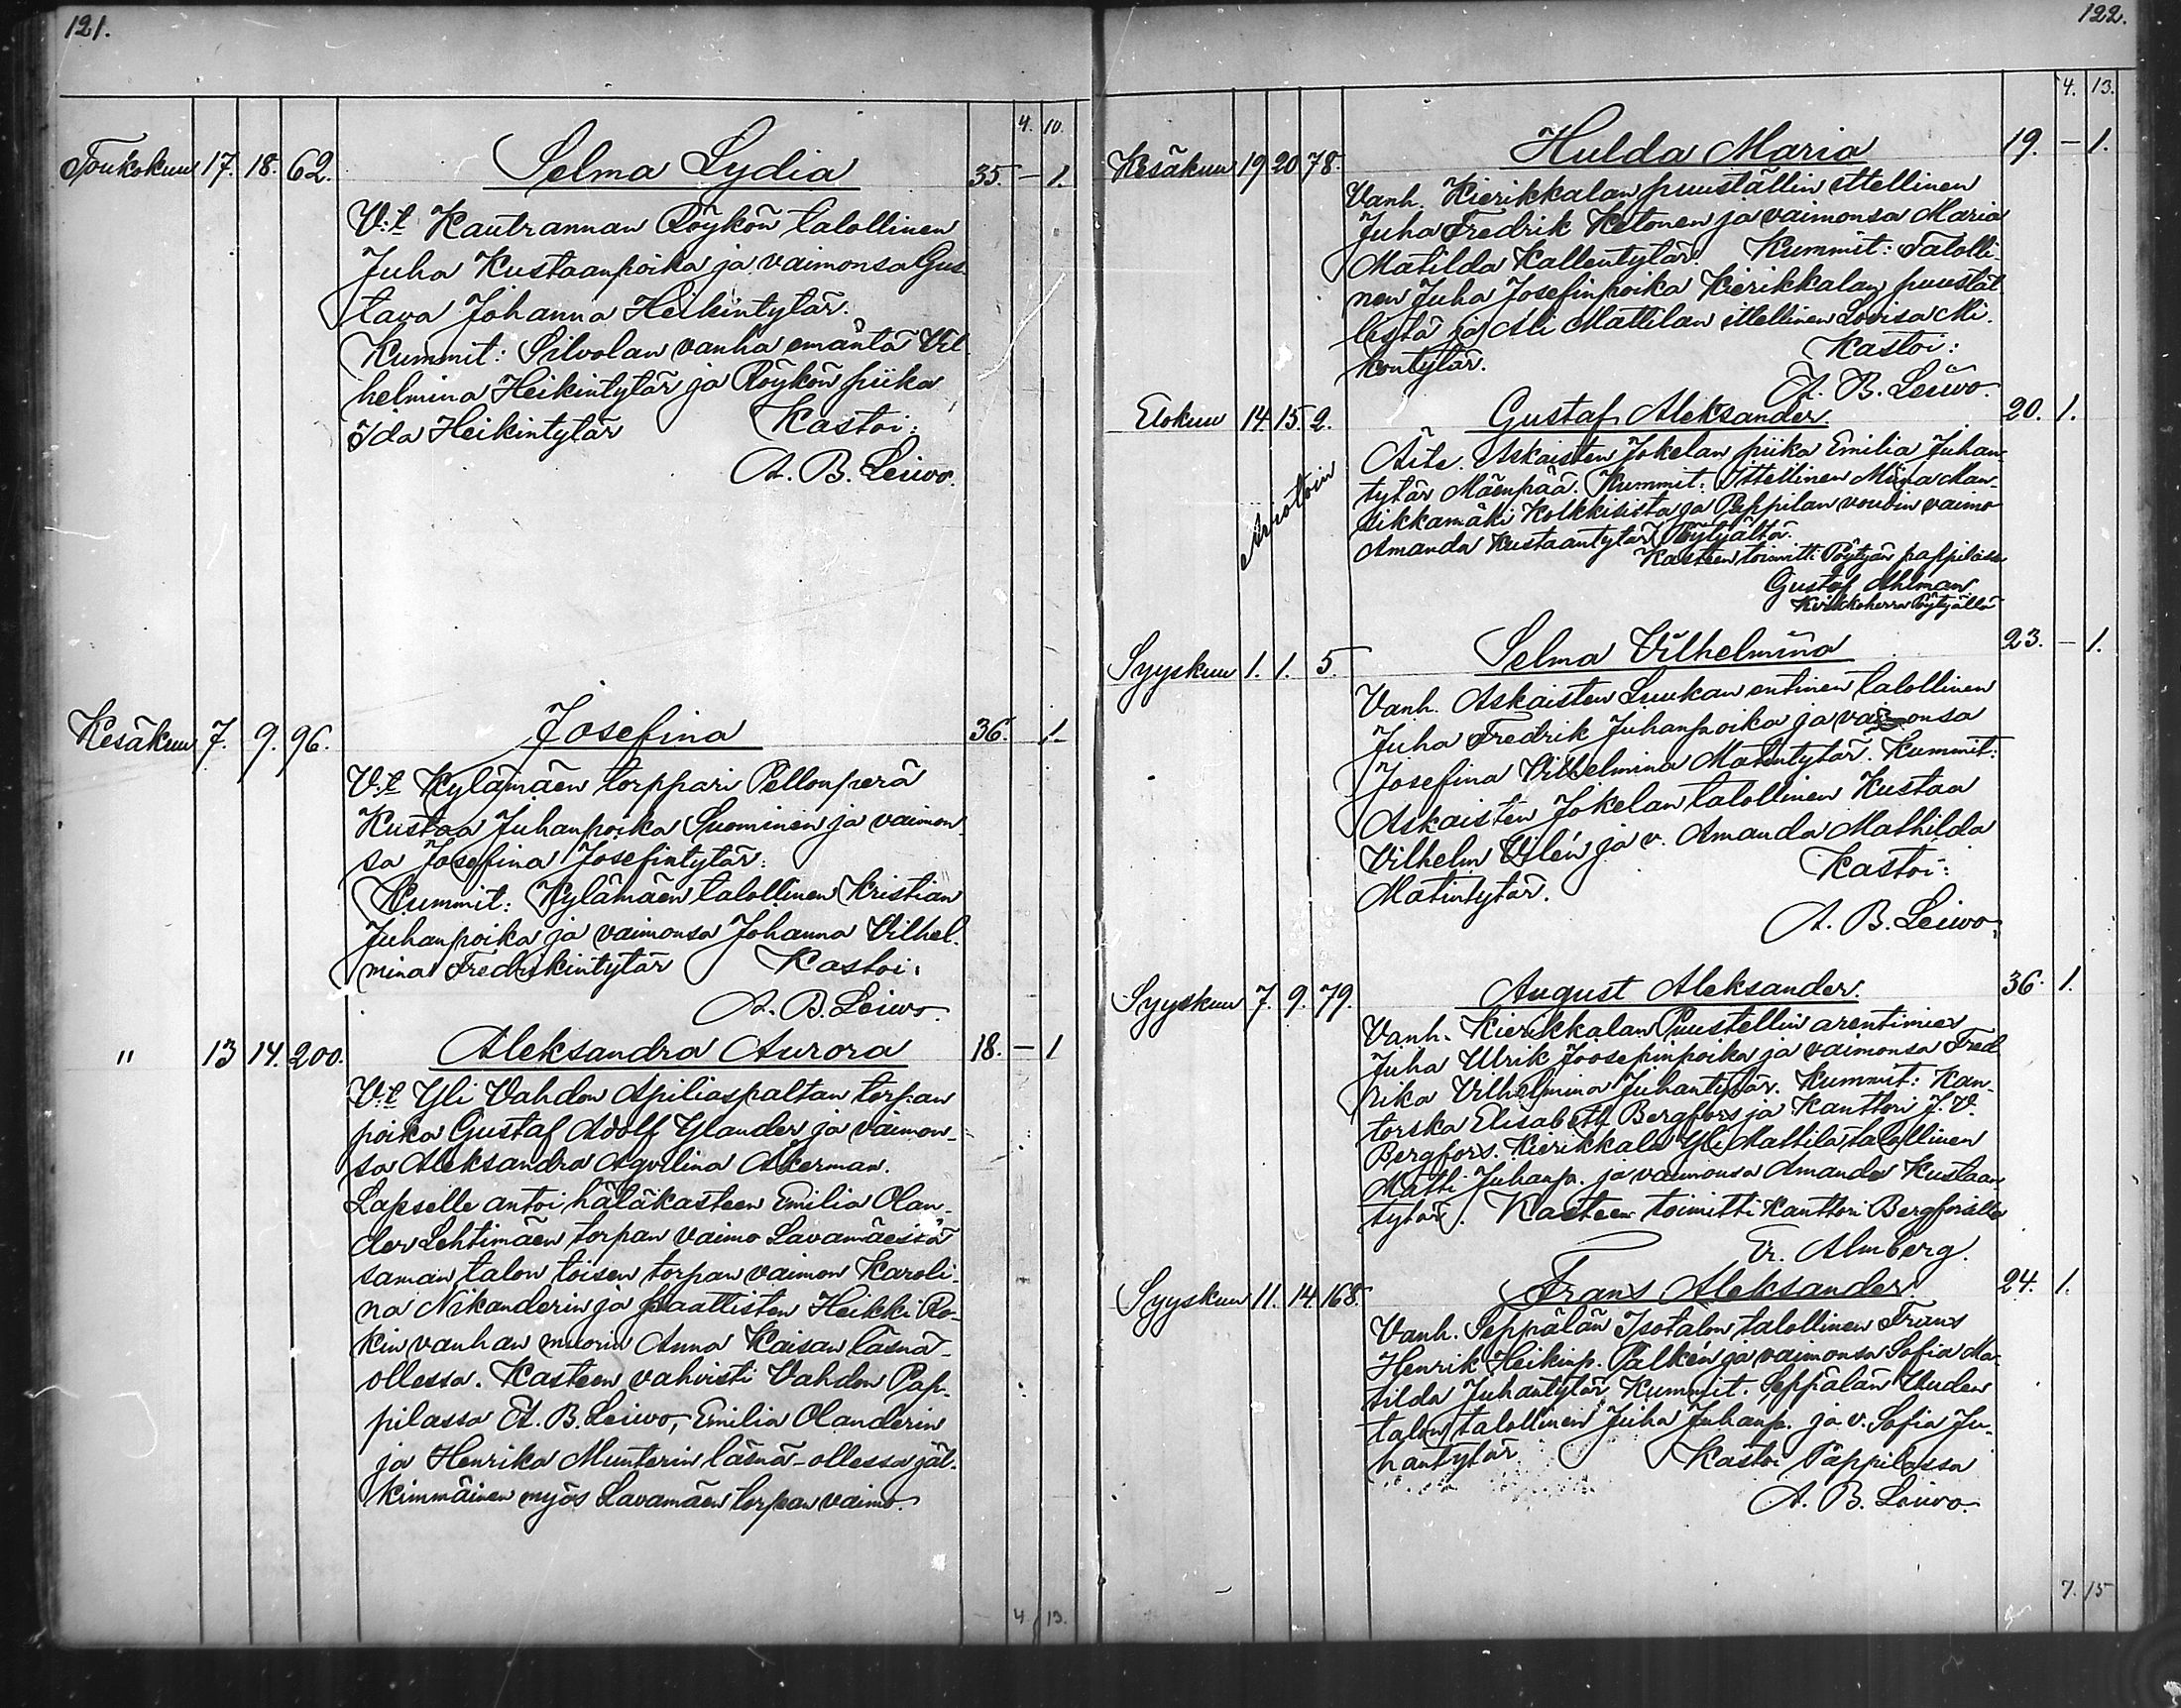 121.
4. 10.
Toukokuu 17. 18. 62. Selma Lydia 35. – 1.
V:t Kautrannan Röykön talollinen
Juha Kustaanpoika ja vaimonsa Gus-
tava Johanna Heikintytär.
Kummit: Silvolan vanha emäntä Vil-
helmina Heikintytär ja Röykön piika
Ida Heikintytär Kastoi:
A. B. Leiwo.
Kesäkuu 7. 9. 96. Josefina 36. 1.
V:t Kylämäen torppari Pellonperä
Kustaa Juhanpoika Suominen ja vaimon-
sa Josefina Josefintytär.
Kummit: Kylämäen talollinen Kristian
Juhanpoika ja vaimonsa Johanna Vilhel-
mina Fredrikintytär Kastoi:
A. B. Leiwo.
" 13 14. 200. Aleksandra Aurora 18. – 1
V:t Yli Vahdon Apiliaspaltan torpan
poika Gustaf Adolf Ylander ja vaimon-
sa Aleksandra Aqvilina Åkerman.
Lapselle antoi hätäkasteen Emilia Olan-
der Lehtimäen torpan vaimo Lavamäestä
saman talon toisen torpan vaimon Karoli-
na Nikanderin ja Paattisten Heikki Ro-
kin vanhan muorin Anna Kaisan läsnä-
ollessa. Kasteen vahvisti Vahdon Pap-
pilassa A. B. Leiwo, Emilia Olanderin
ja Henrika Munterin läsnä-ollessa jäl-
kimmäinen myös Lavamäen torpan vaimo.
4 13.
122.
4. 13.
Kesäkuu 19 20 78. Hulda Maria 19. – 1.
Vanh. Kierikkalan puuställin ittellinen
Juha Fredrik Ketonen ja vaimonsa Maria
Matilda Kallentytär. Kummit: Talolli-
nen Juha Josefinpoika Kierikkalan puustäl-
listä ja Ali Mattilan ittellinen Lovisa Mi-
kontytär. Kastoi:
A. B. Leiwo.
Elokuu 14 15. 2. Gustaf Aleksander. 20. 1.
Äite. Askaisten Jokelan piika Emilia Juhan-
tytär Mäenpää. Kummit: Ittellinen Miina Man-
sikkamäki Kolkkisista ja Pappilan voudin vaimo
Amanda Kustaantytär Pöytyältä.
Kasteen toimitti Pöytyän pappilassa
Gustaf Ahlman
Kirkkoherra Pöytyällä
Syyskuu 1. 1. 5. Selma Vilhelmina 23. – 1.
Vanh. Askaisten Luukan entinen talollinen
Juha Fredrik Juhanpoika ja vaimonsa
Josefina Vilhelmina Matintytär. Kummit:
Askaisten Jokelan talollinen Kustaa
Vilhelm Vilén ja v. Amanda Mathilda
Matintytär. Kastoi:
A. B. Leiwo.
Syyskuu 7. 9. 79. August Aleksander. 36. 1.
Vanh. Kierikkalan Puustellin arentimies
Juha Ulrik Joosepinpoika ja vaimonsa Fred-
rika Vilhelmina Juhantytär. Kummit: Kan-
torska Elisabeth Bergfors ja Kanttori J. V.
Bergfors. Kierikkala Yli Mattila talollinen
Matti Juhanp. ja vaimonsa Amanda Kustaan-
tytär. Kasteen toimitti Kanttori Bergforsilla
Er. Almberg.
Syyskuu 11. 14. 168. Frans Aleksander. 24. 1.
Vanh. Seppälän Isotalon talollinen Frans
Henrik Heikinp. Palkén ja vaimonsa Sofia Ma-
tilda Juhantytär. Kummit. Seppälän Uuden
talon talollinen Juha Juhanp. ja v. Sofia Ju-
hantytär Kastoi Pappilassa
A. B. Leiwo.
7. 15